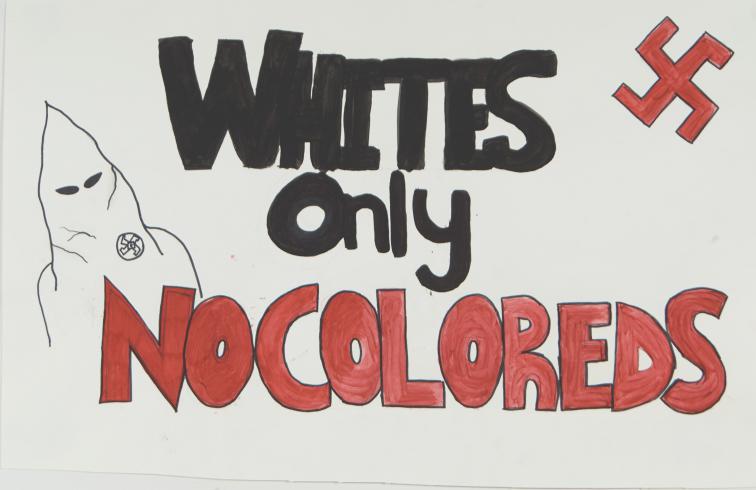 WHITES
Only
NO COLOREDS